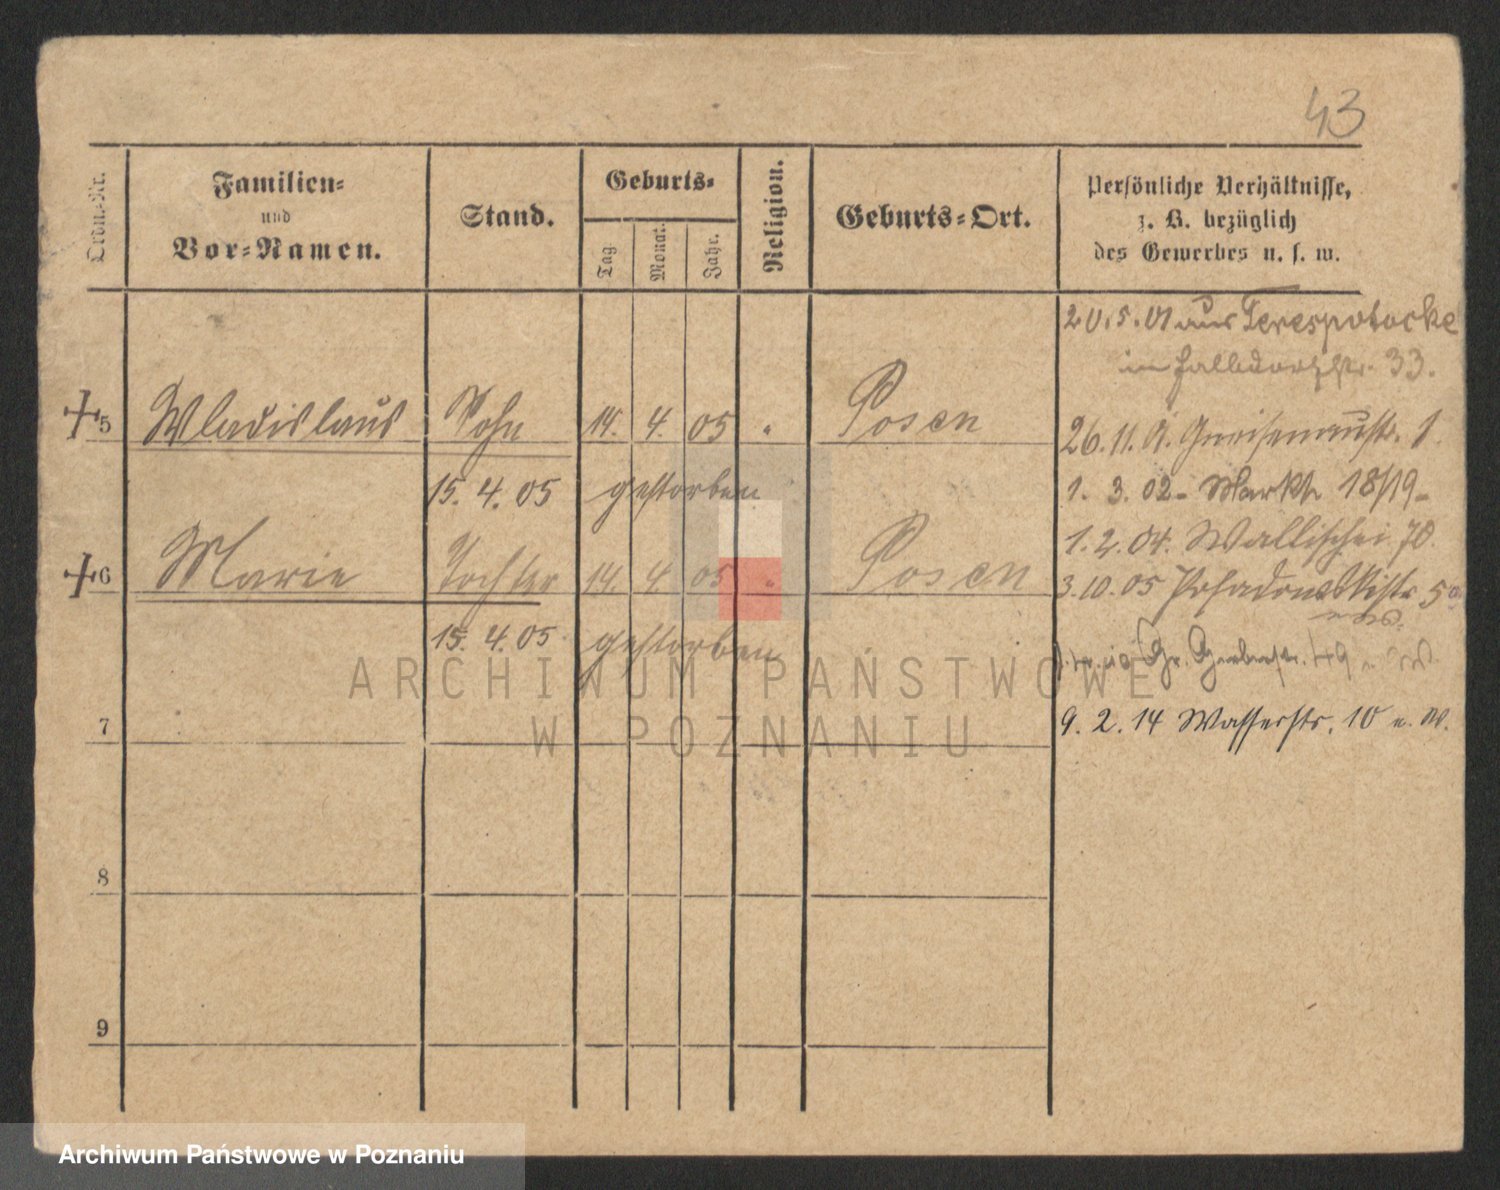 43
Ordn.-Nr.
Familien-
und
Vor-Namen.
Stand.
Geburts-
Tag
Monat.
Jahr.
Religion.
Geburts-Ort.
Persönliche Verhältnisse,
z. B. bezüglich
des Gewerbes u. s. w.
20.5.01 aus Terespotocke
im 33.
+5 Wladislaus Sohn 14. 4. 05 " Posen
26.11.01. Gneisenaustr. 1.
15. 4. 05 gestorben
1. 3. 02 - Markt 18/19 -
1. 2. 04. Wallischei 70.
+6 Marie Tochter 14. 4. 05 " Posen
3.10.05 5
15. 4. 05 gestorben
Gr. Gerberstr. 49
7
9. 2. 14 Wasserstr. 10 u. W.
8
9
ARCHIWUM PAŃSTWOWE
W POZNANIU
Archiwum Państwowe w Poznaniu